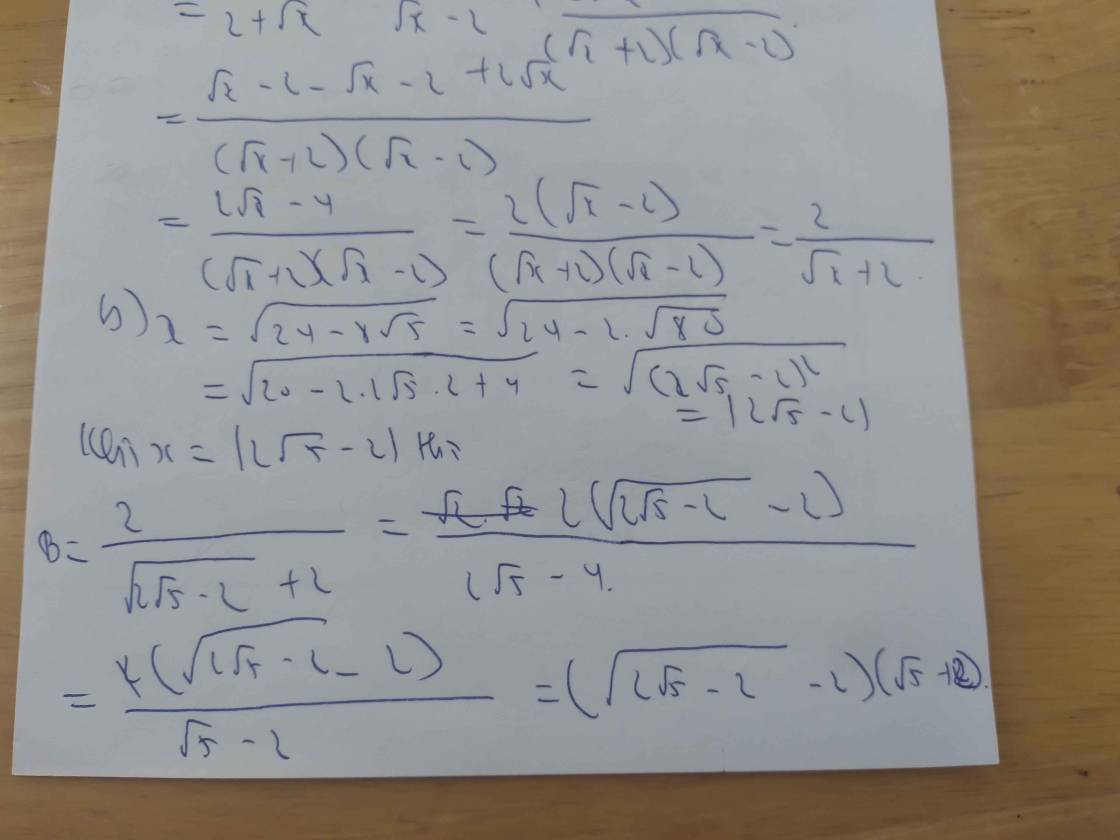 = 2+√x √x - 2 (√x + 2)(√x - 2)
= (√x - 2 - √x - 2 + 2√x) / ((√x + 2)(√x - 2))
= (2√x - 4) / ((√x + 2)(√x - 2)) = 2(√x - 2) / ((√x + 2)(√x - 2)) = 2 / (√x + 2).
b) x = √(24 - 8√5) = √(24 - 2.√80)
= √(20 - 2.2√5.2 + 4) = √((2√5 - 2)²)
= |2√5 - 2|
Khi x = |2√5 - 2| thì
B = 2 / (√(2√5 - 2) + 2) = 2(√(2√5 - 2) - 2) / (2√5 - 4).
= (√(2√5 - 2) - 2) / (√5 - 2) = (√(2√5 - 2) - 2)(√5 + 2).